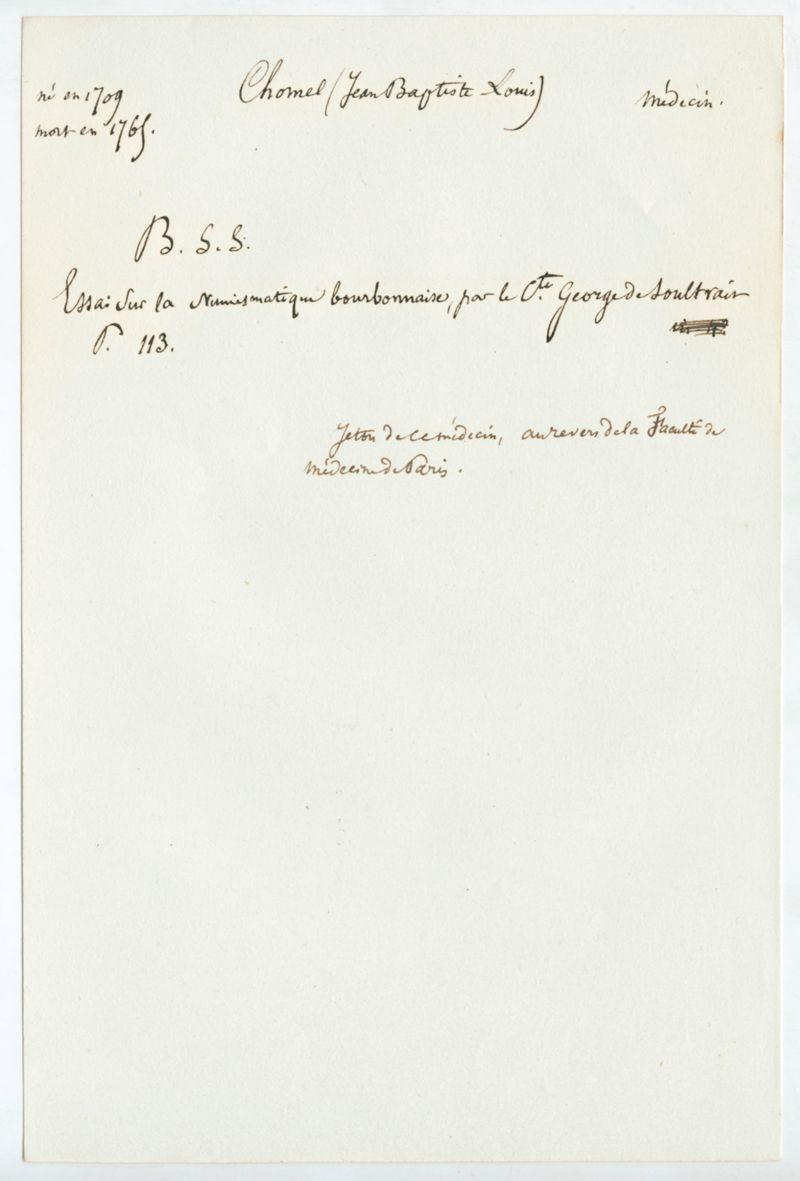 né en 1709 Chomel (Jean Baptiste Louis) Médecin.
mort en 1765.
B. S. S.
Essai sur la Numismatique bourbonnaise, par le Cte. George de Soultrait
P. 113.
Jeton de ce médecin, au revers de la Faculté de
Médecine de Paris.